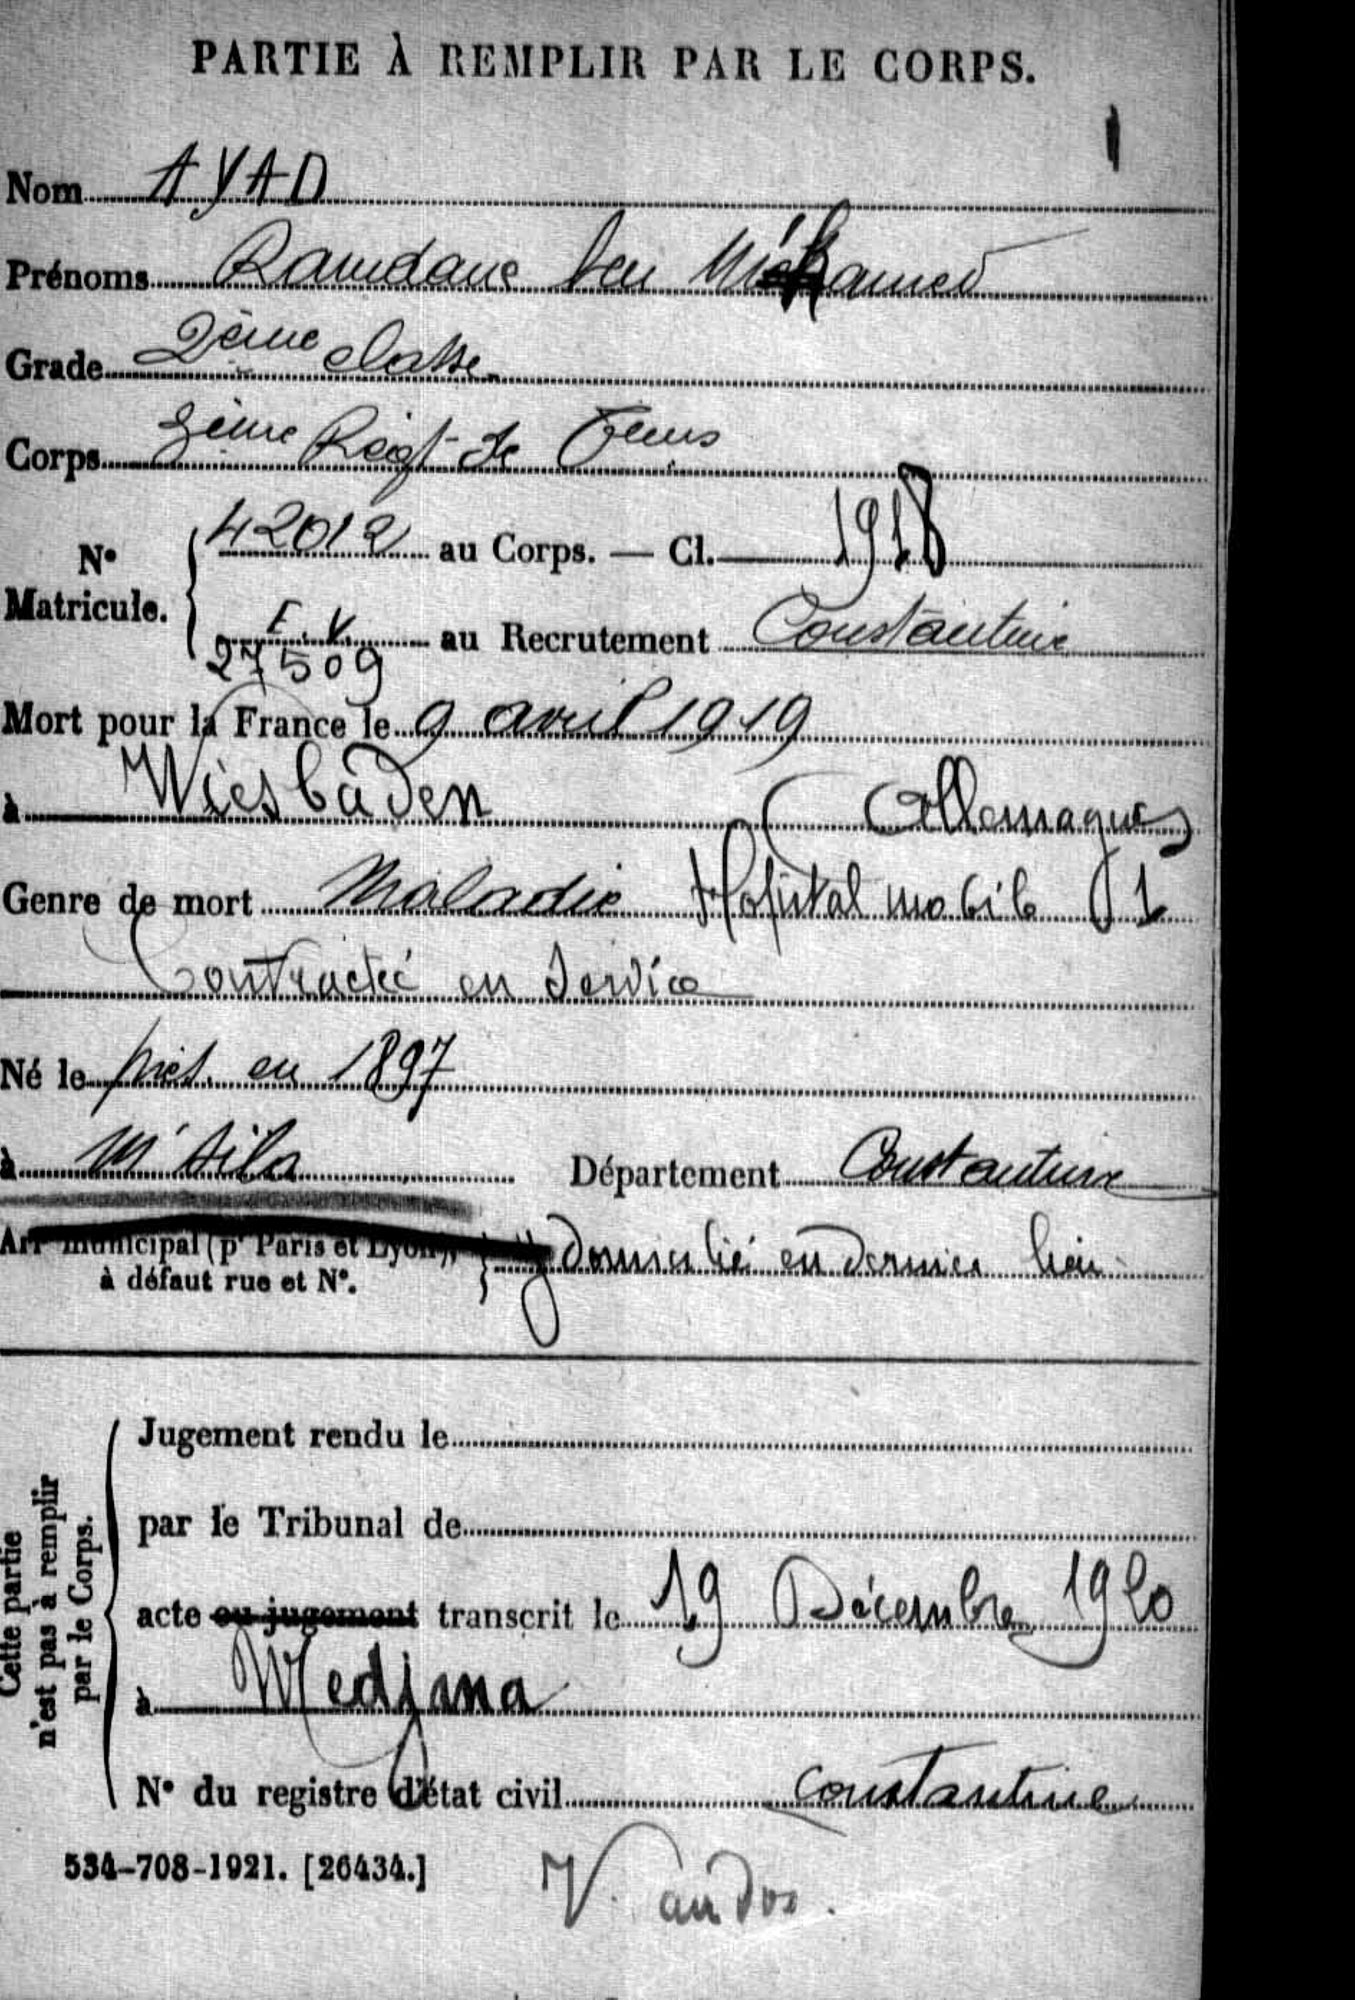 PARTIE À REMPLIR PAR LE CORPS.
Nom AYAD
Prénoms Ramdane ben Mohamed
Grade 2ème classe
Corps Régt de
N° Matricule. 42012 au Corps. — Cl. 1918
E. V. 27509 au Recrutement Constantine
Mort pour la France le 9 avril 1919
à Wiesbaden (Allemagne)
Genre de mort Maladie Hopital mobile 1
Contractée en Service
Né le en 1897
à M'sila Département Constantine
Arr municipal (pr Paris et Lyon), à défaut rue et N°. } y domicilié en dernier lieu
Cette partie n'est pas à remplir par le Corps.
Jugement rendu le
par le Tribunal de
acte ou jugement transcrit le 19 Décembre 1920
à Medjana
N° du registre d'état civil Constantine
534-708-1921. [26434.]
V. au dos.